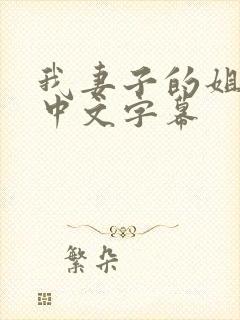 我妻子的姐
中文字幕
繁朵